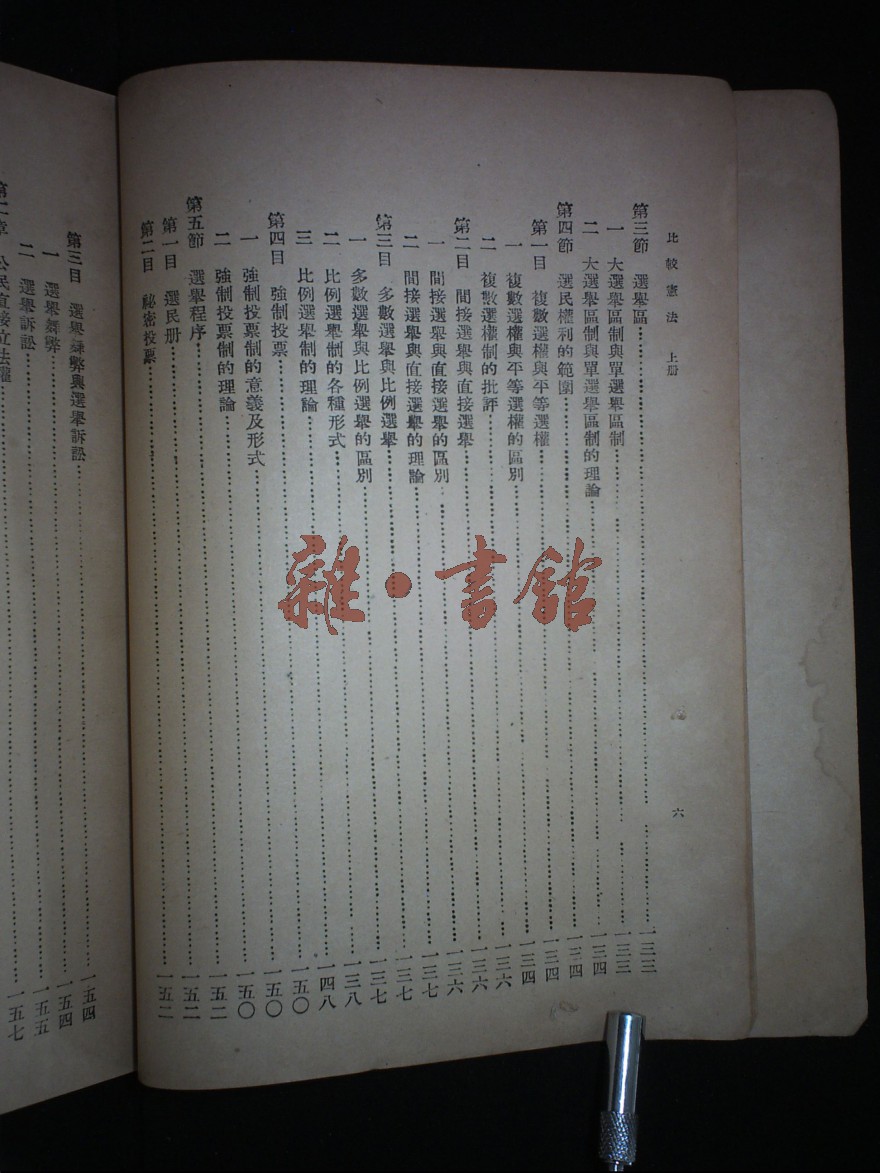 比較憲法　上册
六
第三節　選舉區……一三三
一　大選舉區制與單選舉區制……一三三
二　大選舉區制與單選舉區制的理論……一三四
第四節　選民權利的範圍……一三四
第一目　複數選權與平等選權……一三四
一　複數選權與平等選權的區別……一三四
二　複數選權制的批評……一三六
第二目　間接選舉與直接選舉……一三六
一　間接選舉與直接選舉的區別……一三六
二　間接選舉與直接選舉的理論……一三七
第三目　多數選舉與比例選舉……一三七
一　多數選舉與比例選舉的區別……一三七
二　比例選舉制的各種形式……一三八
三　比例選舉制的理論……一四八
第四目　強制投票……一五〇
一　強制投票制的意義及形式……一五〇
二　強制投票制的理論……一五〇
第五節　選舉程序……一五二
第一目　選民册……一五二
第二目　祕密投票……一五二
第三目　選舉舞弊與選舉訴訟……一五四
一　選舉舞弊……一五四
二　選舉訴訟……一五五
第二章　公民直接立法權……一五七
雜·書館